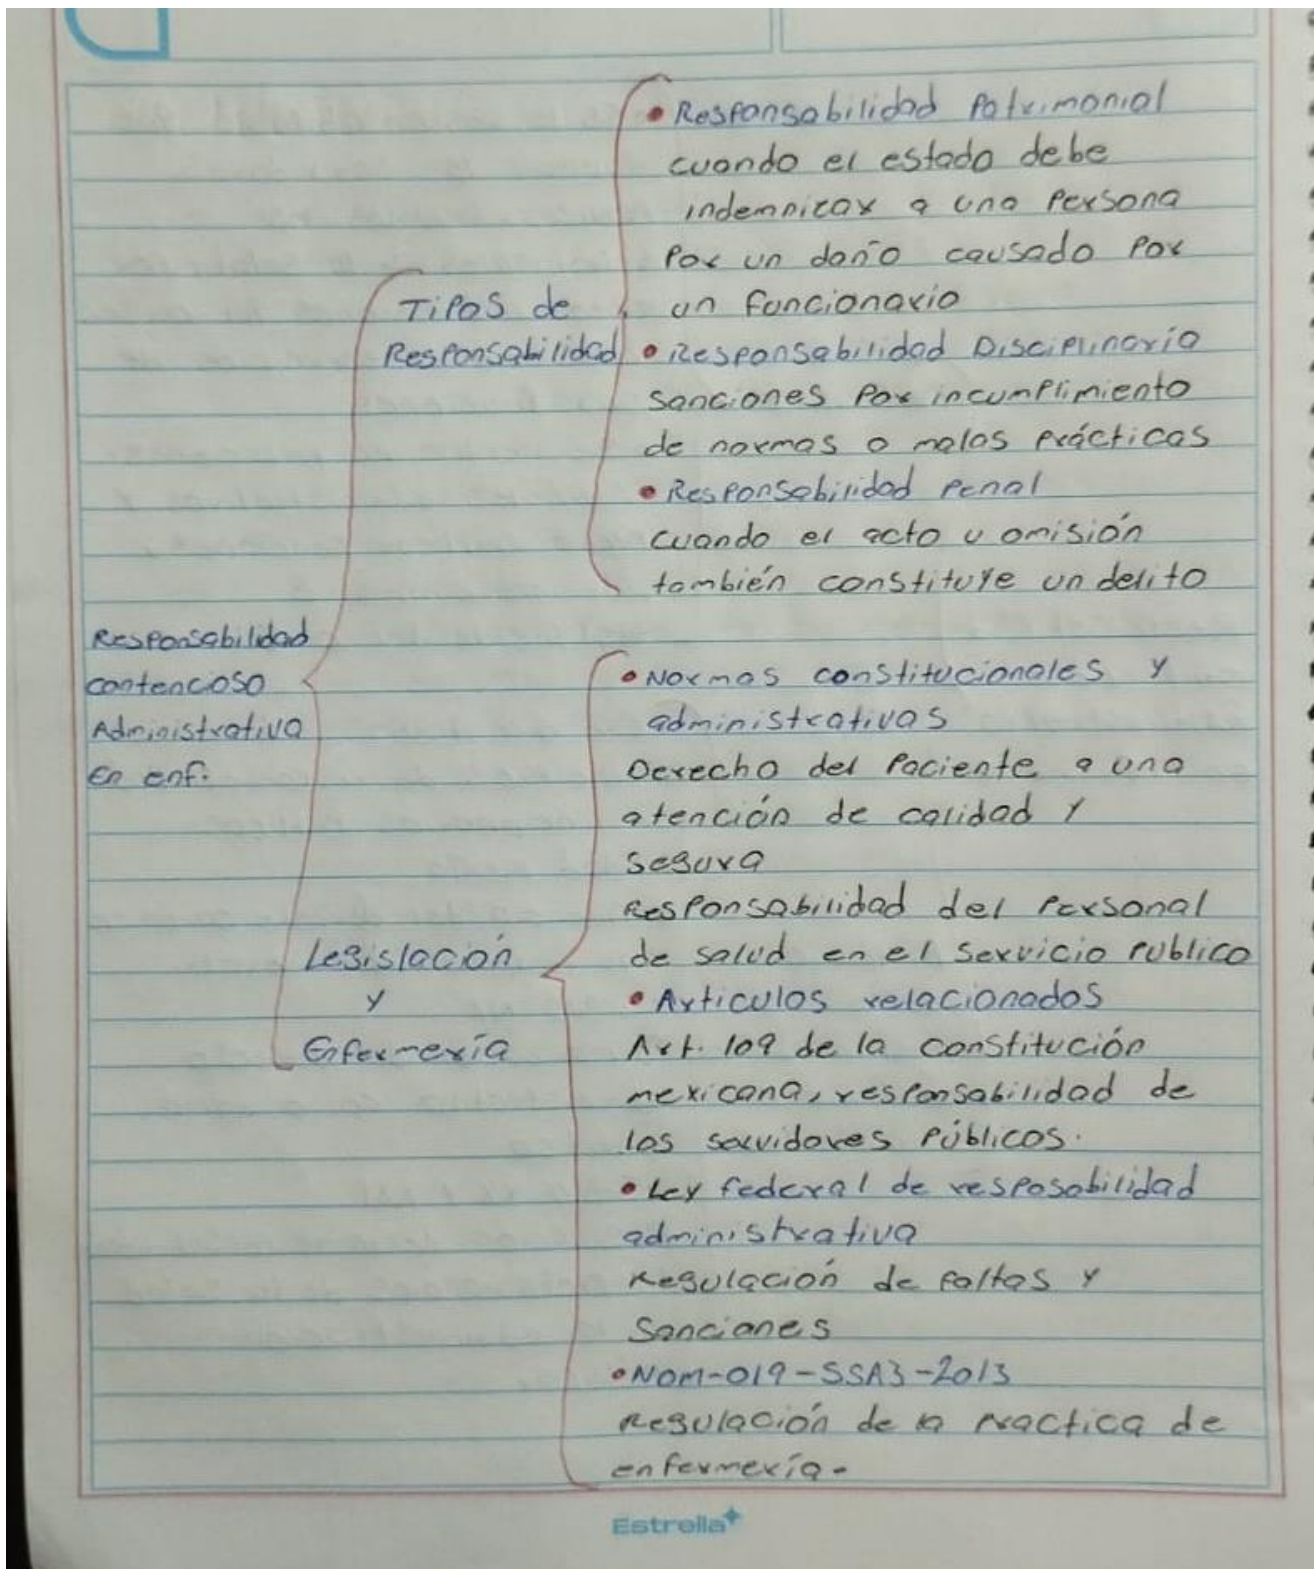 Responsabilidad
contencoso
Administrativa
En enf.
Tipos de
Responsabilidad
• Responsabilidad Patrimonial
cuando el estado debe
indemnizar a una Persona
Por un daño causado Por
un funcionario
• Responsabilidad Disciplinaria
sanciones Por incumplimiento
de normas o malas prácticas
• Responsabilidad Penal
cuando el acto u omisión
también constituye un delito
Legislación
y
Enfermería
• Normas constitucionales y
administrativas
Derecho del Paciente a una
atención de calidad y
segura
Responsabilidad del Personal
de salud en el servicio publico
• Articulos relacionados
Art. 109 de la constitución
mexicana, responsabilidad de
los servidores Públicos.
• Ley federal de resposabilidad
administrativa
Regulación de faltas y
Sanciones
• Nom-019-SSA3-2013
Regulación de la practica de
enfermería.
Estrella